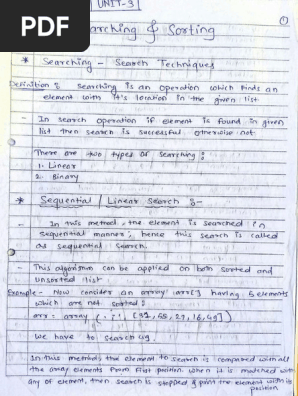 PDF
UNIT-3
1
Searching & Sorting
* Searching - Search Techniques
Definition : Searching is an operation which finds an
element with it's location in the given list
- In search operation if element is found in given
list then search is successful otherwise not
There are two types of searching :
1. Linear
2. Binary
* Sequential / Linear Search :-
- In this method, the element is searched in
sequential manner, hence this search is called
as sequential search.
- This algorithm can be applied on both sorted and
unsorted list
Example - Now consider an array arr[] having 5 elements
which are not sorted :
arr = array ('i', [32, 55, 27, 16, 49])
we have to search 49
In this method, the element to search is compared with all
the array elements from first position. when it is matched with
any of element, then search is stopped & print the element with its
position